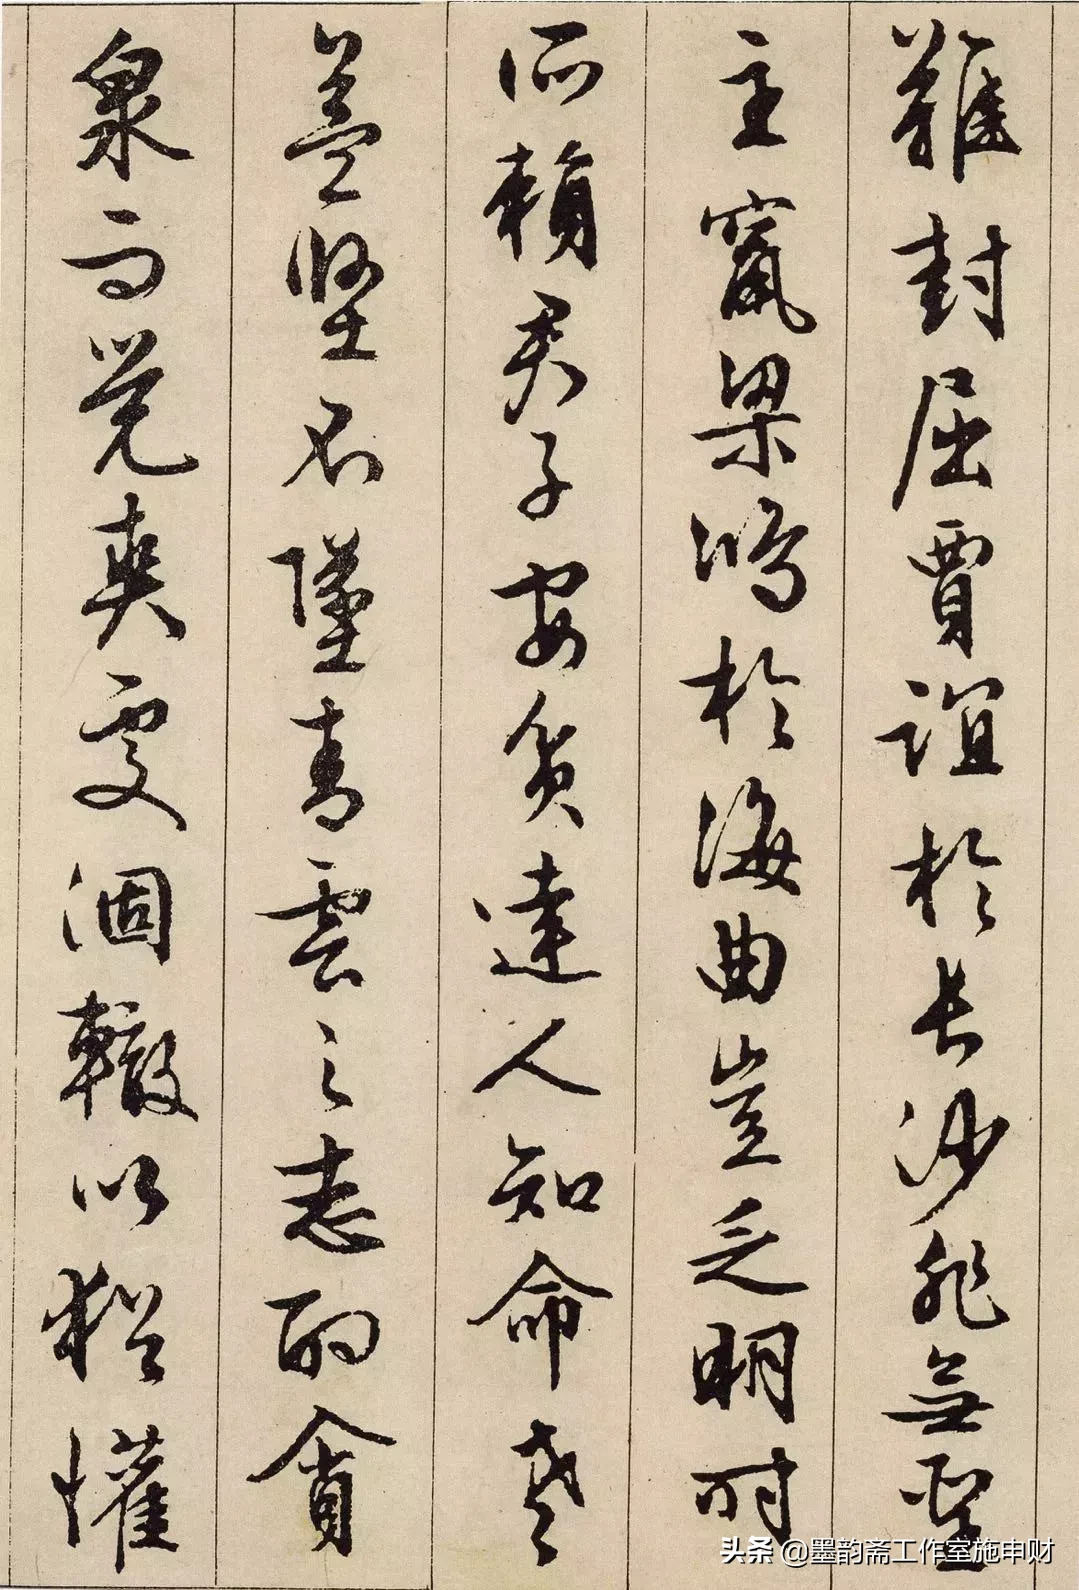 難封屈賈誼於長沙非無聖
主竄梁鴻於海曲豈乏明時
所賴君子安貧達人知命老
益堅不墜青雲之志酌貪
泉而覺爽處涸轍以猶懽
头条 @墨韵斋工作室施申财